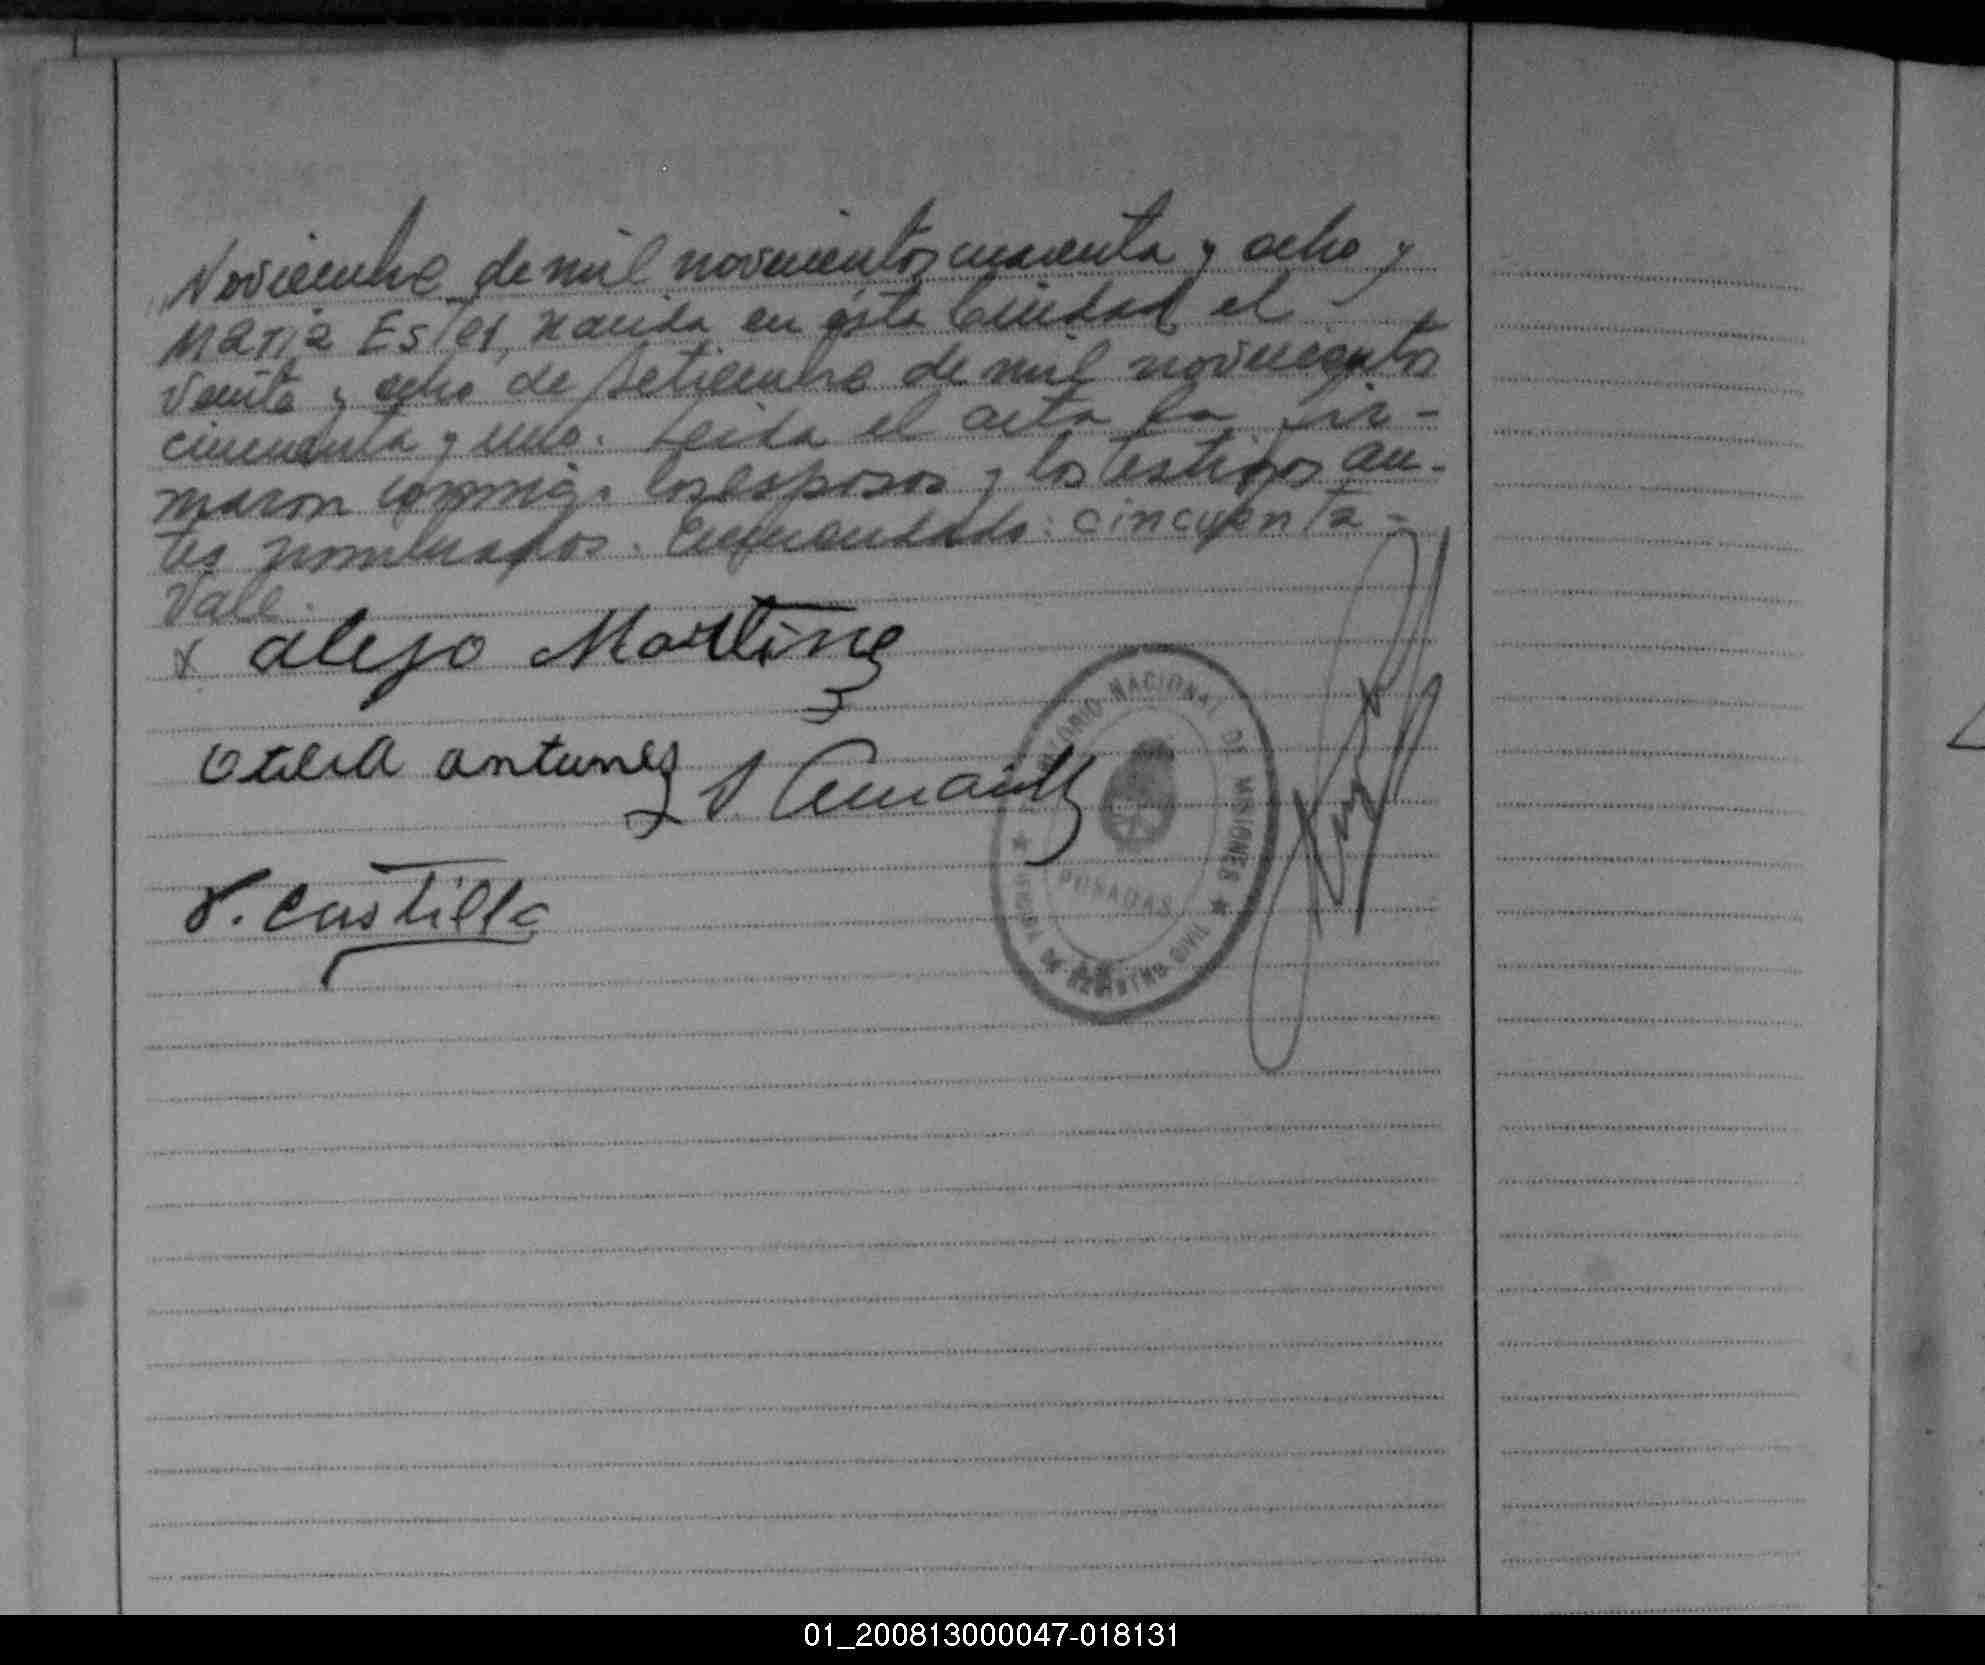 Noviembre de mil novecientos cuarenta y ocho y
María Ester, nacida en ésta Ciudad el
veinte y ocho de Setiembre de mil novecientos
cincuenta y uno. Leída el acta la fir-
maron conmigo los esposos y los testigos an-
tes nombrados. Enmendado: cincuenta-
Vale.
x alejo Martinez
Otilia antunez
V. Castillo
TERRITORIO NACIONAL DE MISIONES
POSADAS
DE REGISTRO CIVIL
01_200813000047-018131